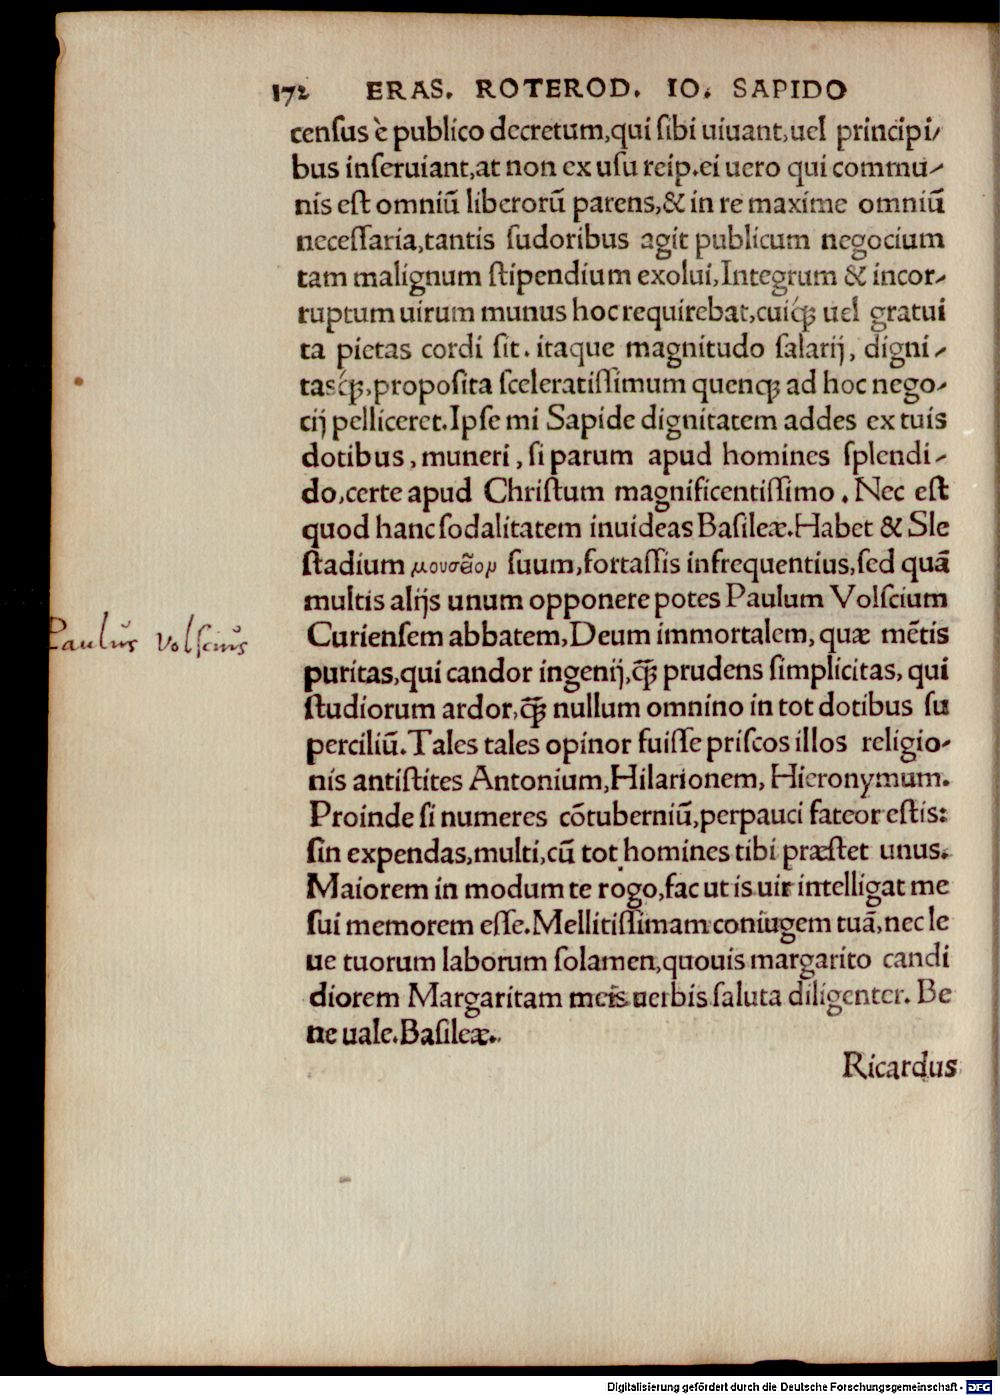 172 ERAS. ROTEROD. IO. SAPIDO
census è publico decretum,qui sibi uiuant,uel principi/
bus inseruiant,at non ex usu reip.ei uero qui commu-
nis est omniũ liberorũ parens,& in re maxime omniũ
necessaria,tantis sudoribus agit publicum negocium
tam malignum stipendium exolui,Integrum & incor-
ruptum uirum munus hoc requirebat,cuiq́ꝫ uel gratui
ta pietas cordi sit. itaque magnitudo salarij, digni-
tasq́ꝫ,proposita sceleratissimum quenqꝫ ad hoc nego-
cij pelliceret.Ipse mi Sapide dignitatem addes ex tuis
dotibus, muneri, si parum apud homines splendi-
do,certe apud Christum magnificentissimo. Nec est
quod hanc sodalitatem inuideas Basileæ.Habet & Sle
stadium μουσεῖον suum,fortassis infrequentius,sed quã
multis alijs unum opponere potes Paulum Volscium
Paulus Volscius
Curiensem abbatem,Deum immortalem, quæ mẽtis
puritas,qui candor ingenij,q̃ꝫ prudens simplicitas, qui
studiorum ardor,q̃ꝫ nullum omnino in tot dotibus su
perciliũ.Tales tales opinor fuisse priscos illos religio-
nis antistites Antonium,Hilarionem, Hieronymum.
Proinde si numeres cõtuberniũ,perpauci fateor estis:
sin expendas,multi,cũ tot homines tibi præstet unus.
Maiorem in modum te rogo,fac ut is uir intelligat me
sui memorem esse.Mellitissimam coniugem tuã,nec le
ue tuorum laborum solamen,quouis margarito candi
diorem Margaritam meis uerbis saluta diligenter. Be
ne uale.Basileæ.
Ricardus
Digitalisierung gefördert durch die Deutsche Forschungsgemeinschaft - DFG